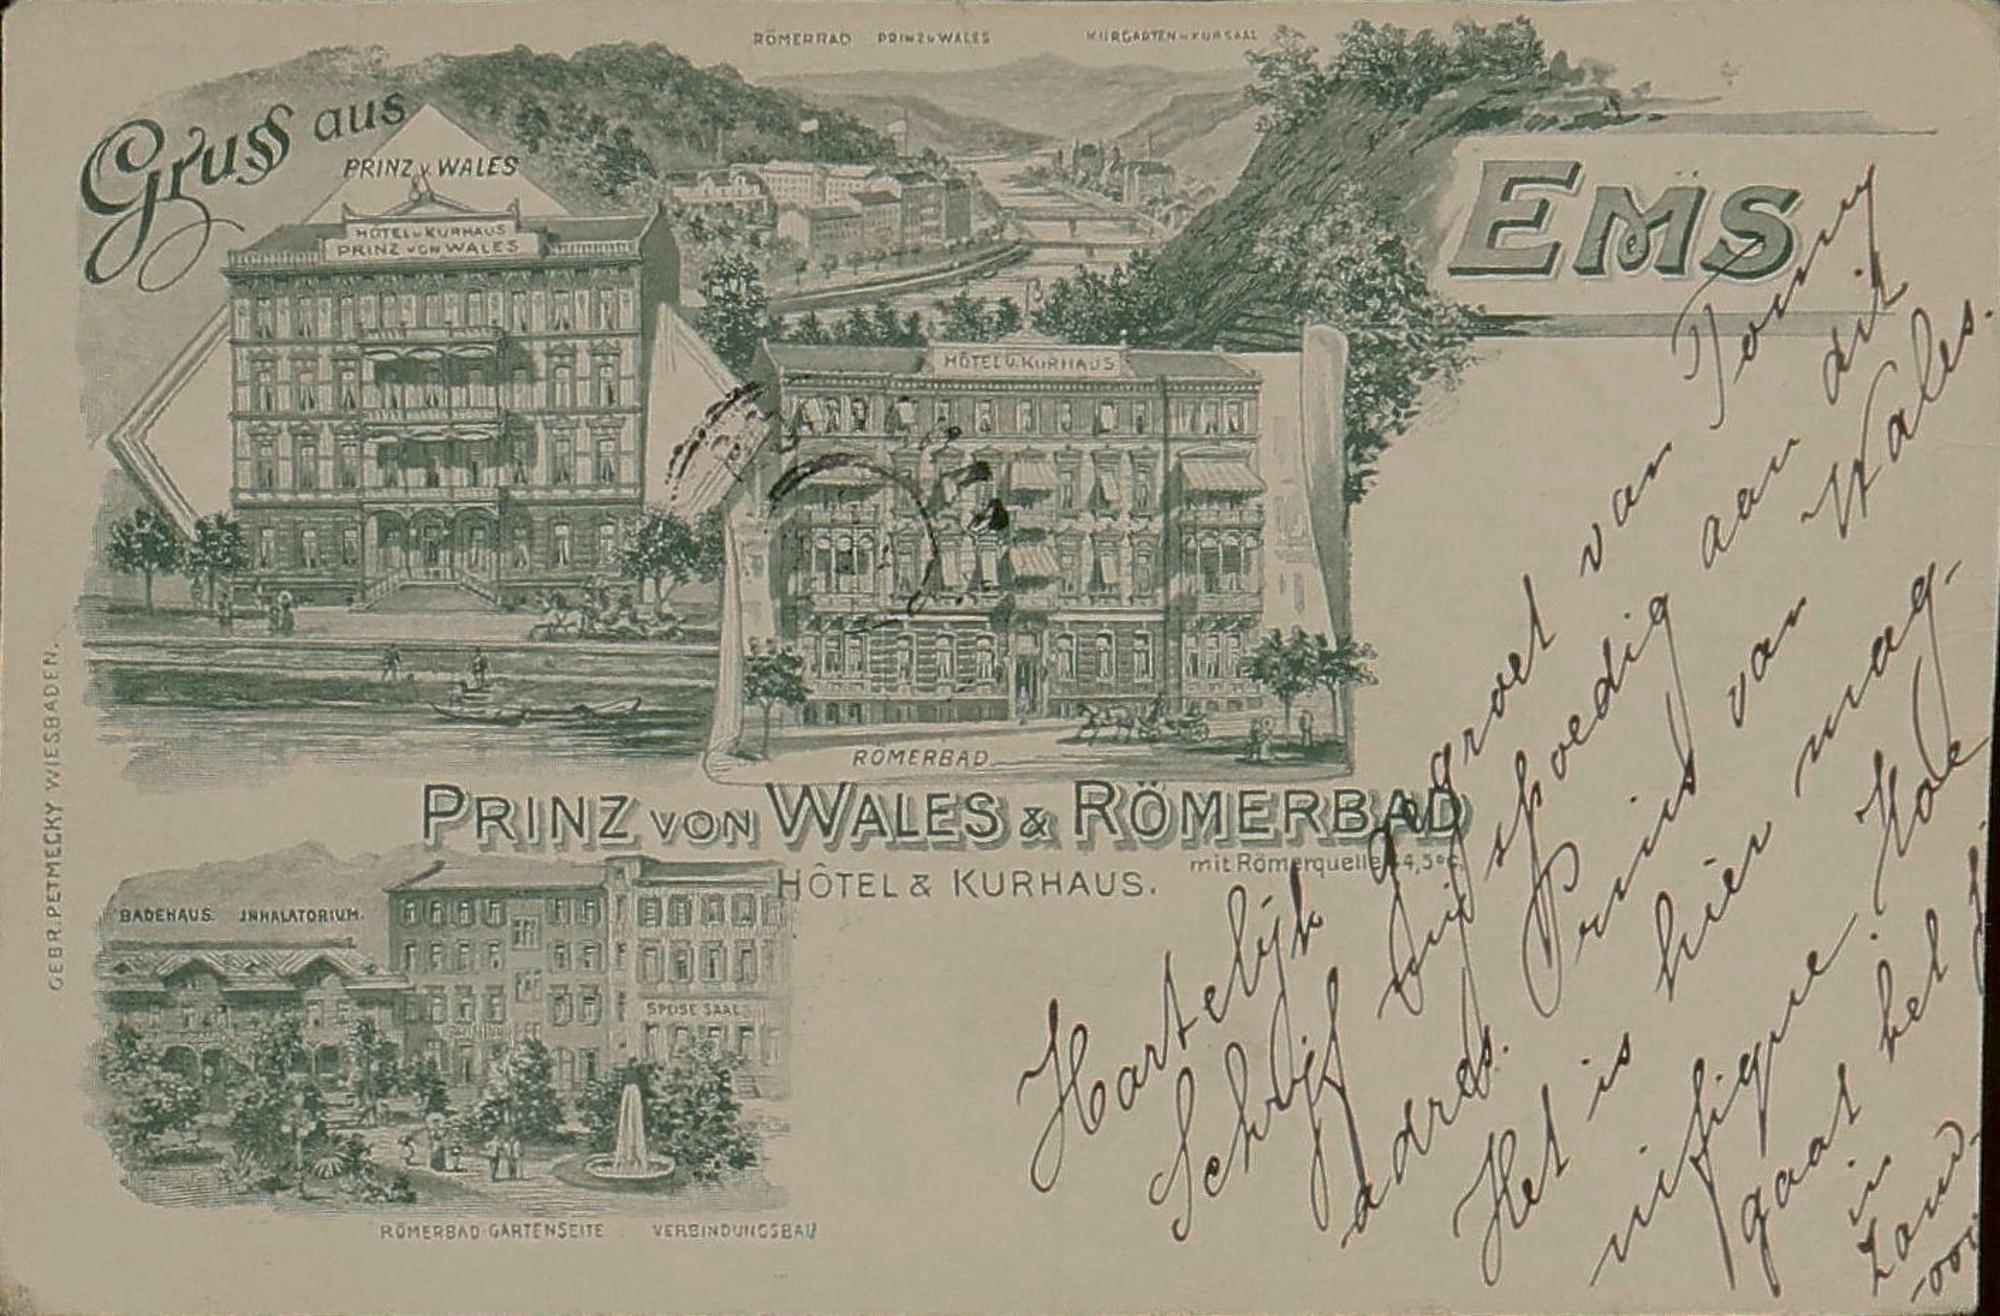 RÖMERBAD PRINZ v WALES KURGARTEN u KURSAAL
Gruss aus
EMS
PRINZ v. WALES
HÔTEL u KURHAUS
PRINZ von WALES
HÔTEL u. KURHAUS
RÖMERBAD
PRINZ VON WALES & RÖMERBAD
mit Römerquelle 44,5°C.
HÔTEL & KURHAUS.
BADEHAUS. INHALATORIUM.
SPEISE SAAL
RÖMERBAD-GARTENSEITE VERBINDUNGSBAU
GEBR. PETMECKY WIESBADEN.
Hartelijk gegroet van Tonny
Schrijf bij spoedig aan dit
adres. Prins van Wales.
Het is hier mag-
nifique. Hoe
gaat het
in
Zand-
voort